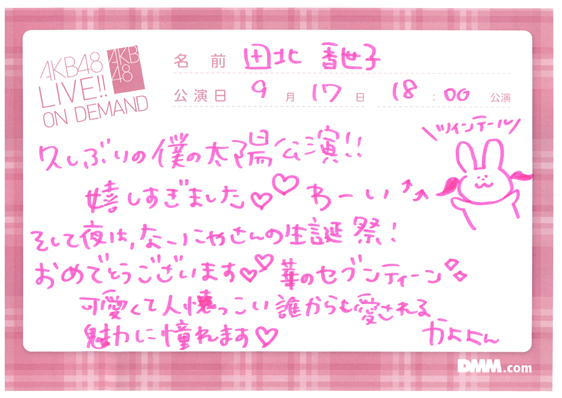 AKB48
LIVE!!
ON DEMAND
AKB
48
名前 田北 香世子
公演日 9月17日 18:00 公演
ツインテール
久しぶりの僕の太陽公演!!
嬉しすぎました♡♡ わーい
そして夜は、なーにゃさんの生誕祭!
おめでとうございます♡♡ 華のセブンティーン
可愛くて人懐っこい誰からも愛される
魅力に憧れます♡
DMM.com